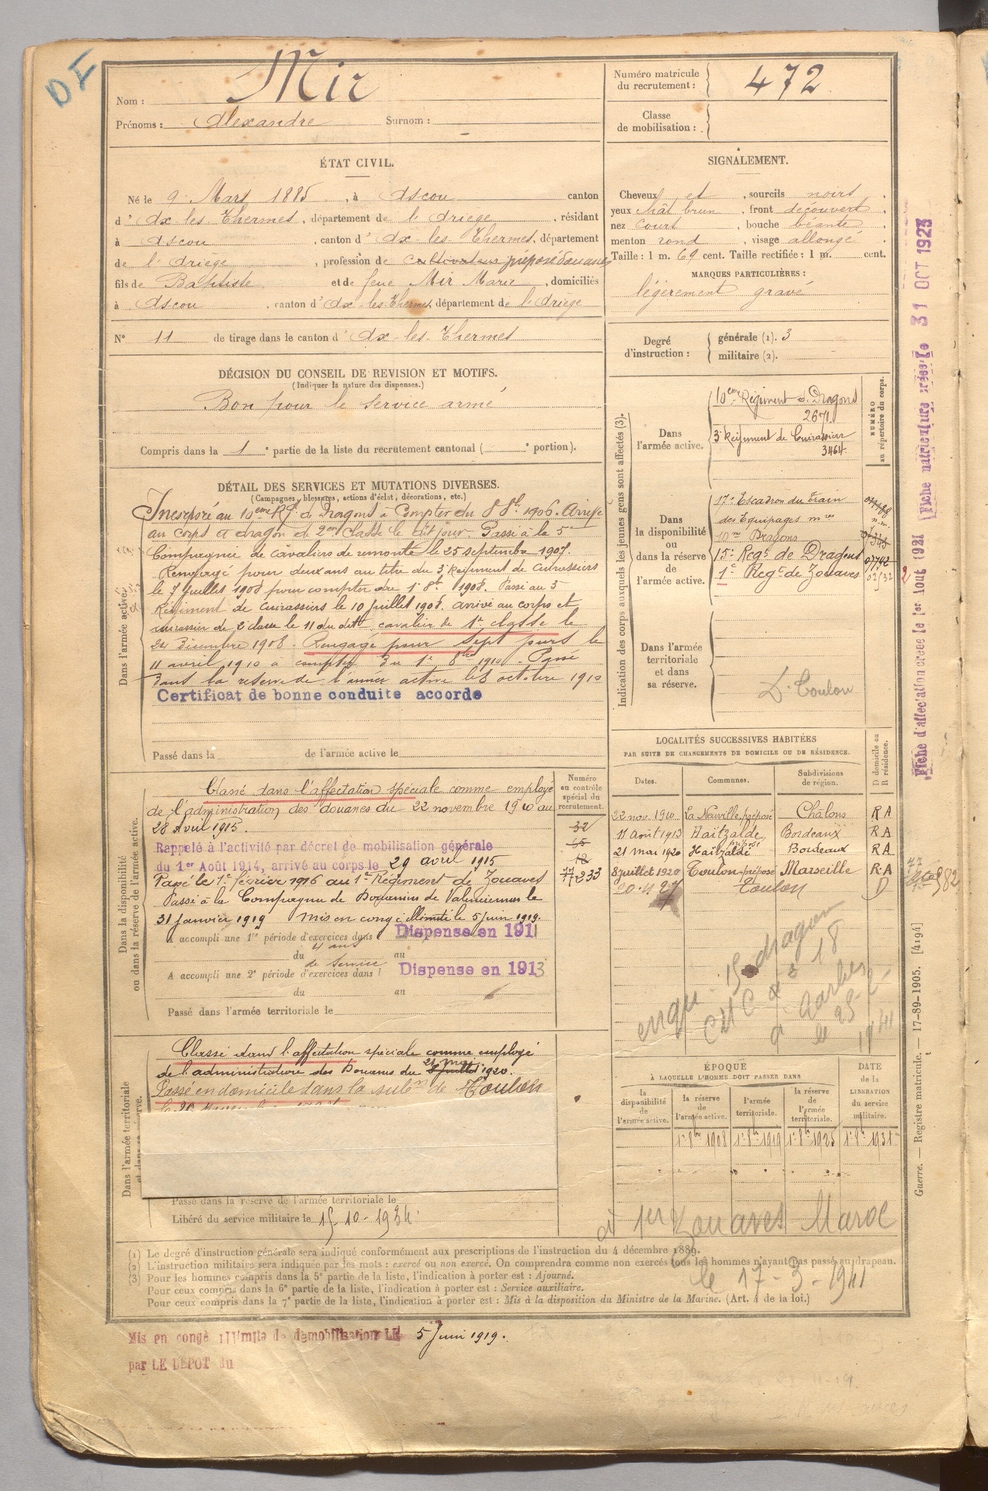 DF
Nom : Mir
Prénoms : Alexandre Surnom :
Numéro matricule du recrutement : 472
Classe de mobilisation :
ÉTAT CIVIL.
Né le 9 Mars 1885, à Ascou canton
d' Ax les Thermes, département de l'Ariège, résidant
à Ascou, canton d' Ax les Thermes, département
de l'Ariège, profession de cultivateur préposé douanes
fils de Baptiste et de feue Mir Marie, domiciliés
à Ascou, canton d' Ax-les-Thermes, département de l'Ariège
N° 11 de tirage dans le canton d' Ax-les-Thermes
SIGNALEMENT.
Cheveux et, sourcils noirs
yeux chât brun, front découvert,
nez court, bouche béante,
menton rond, visage allongé
Taille : 1 m. 69 cent. Taille rectifiée : 1 m. cent.
MARQUES PARTICULIÈRES :
légèrement gravé
Degré d'instruction :
générale (1). 3
militaire (2).
DÉCISION DU CONSEIL DE REVISION ET MOTIFS.
(Indiquer la nature des dispenses.)
Bon pour le service armé
Compris dans la 1e partie de la liste du recrutement cantonal ( e portion).
DÉTAIL DES SERVICES ET MUTATIONS DIVERSES.
(Campagnes, blessures, actions d'éclat, décorations, etc.)
Dans l'armée active.
Incorporé au 10eme Rgt de Dragons à Compter du 8 8bre 1906. Arrivé
au corps et dragon de 2eme classe le dit jour. Passé à la 5e
Compagnie de cavaliers de remonte le 25 septembre 1907.
Rengagé pour deux ans au titre du 3e Régiment de Cuirassiers
le 7 juillet 1908 pour compter du 1er 8bre 1908. Passé au 3e
Régiment de Cuirassiers le 10 juillet 1908, arrivé au corps et
cuirassier de 2e classe le 11 du dit. cavalier de 1e classe le
24 décembre 1908. Rengagé pour sept jours le
11 avril 1910 à compter du 1er 8bre 1910. Passé
dans la réserve de l'armée active le 8 octobre 1910
Certificat de bonne conduite accordé
Passé dans la de l'armée active le
Indication des corps auxquels les jeunes gens sont affectés (3).
NUMÉRO au répertoire du corps.
Dans l'armée active.
10eme Régiment de Dragons
2671
3e Régiment de Cuirassiers
3464
Dans la disponibilité ou dans la réserve de l'armée active.
17e Escadron du train
des Equipages mre
10me Dragons
15e Regt de Dragons
1er Regt de Zouaves
Dans l'armée territoriale et dans sa réserve.
D. Toulon
Fiche d'affectation créée le 1er Août 1921
Fiche matriculaire créée le 31 OCT 1923
LOCALITÉS SUCCESSIVES HABITÉES
PAR SUITE DE CHANGEMENTS DE DOMICILE OU DE RÉSIDENCE.
Dates. Communes. Subdivisions de région. D domicile ou R résidence.
22 nov. 1910 La Neuville Châlons RA
11 août 1913 Haitzalde Bordeaux RA
21 mai 1920 Haitzalde Bordeaux RA
8 juillet 1920 Toulon préposé Marseille RA
20.4.27 Toulon D
Dans la disponibilité ou dans la réserve de l'armée active.
Numéro au contrôle spécial du recrutement.
Classé dans l'affectation spéciale comme employé
de l'administration des douanes du 22 novembre 1910 au
28 avril 1915.
Rappelé à l'activité par décret de mobilisation générale
du 1er Août 1914, arrivé au corps le 29 avril 1915
Passé le 1er février 1916 au 1er Régiment de Zouaves
Passé à la Compagnie de Douaniers de Valenciennes le
31 janvier 1919 Mis en congé illimité le 5 juin 1919.
A accompli une 1re période d'exercices dans Dispensé en 1911
du 4 ans au
de service
A accompli une 2e période d'exercices dans Dispensé en 1913
du au
Passé dans l'armée territoriale le
Dans l'armée territoriale
Classé dans l'affectation spéciale comme employé
de l'administration des Douanes du 21 mai 1920.
Passé en domicile dans la subon de Toulon
Passé dans la réserve de l'armée territoriale le
Libéré du service militaire le 15-10-1934
15 dragon
18
à Tarbes
1941
ÉPOQUE
À LAQUELLE L'HOMME DOIT PASSER DANS
la disponibilité de l'armée active. la réserve de l'armée active. l'armée territoriale. la réserve de l'armée territoriale. DATE de la LIBÉRATION du service militaire.
1er 8bre 1908 1er 8bre 1919 1er 8bre 1925 1er 8bre 1931
1er Zouaves Maroc
le 17-3-1941
Guerre. — Registre matricule. — 17-89-1905. [4194]
(1) Le degré d'instruction générale sera indiqué conformément aux prescriptions de l'instruction du 4 décembre 1889.
(2) L'instruction militaire sera indiquée par les mots : exercé ou non exercé. On comprendra comme non exercés tous les hommes n'ayant pas passé au drapeau.
(3) Pour les hommes compris dans la 5e partie de la liste, l'indication à porter est : Ajourné.
Pour ceux compris dans la 6e partie de la liste, l'indication à porter est : Service auxiliaire.
Pour ceux compris dans la 7e partie de la liste, l'indication à porter est : Mis à la disposition du Ministre de la Marine. (Art. de la loi.)
Mis en congé illimité de démobilisation LE 5 Juin 1919.
par LE DEPOT du